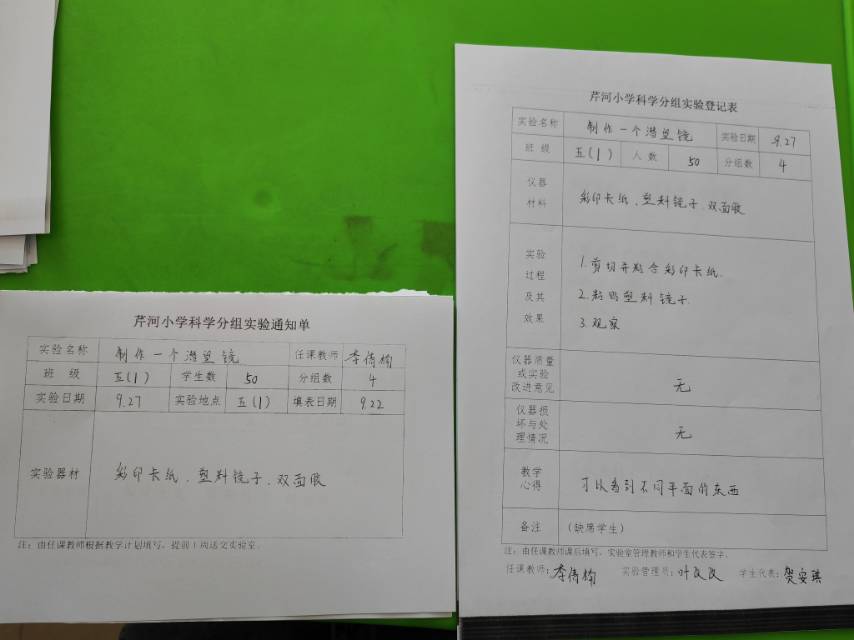 芹河小学科学分组实验通知单
实验名称 制作一个潜望镜 任课教师 李倩楠
班 级 五(1) 学生数 50 分组数 4
实验日期 9.27 实验地点 五(1) 填表日期 9.22
实验器材 彩印卡纸、塑料镜子、双面胶
注：由任课教师根据教学计划填写，提前1周送交实验室。
芹河小学科学分组实验登记表
实验名称 制作一个潜望镜 实验日期 9.27
班 级 五(1) 人 数 50 分组数 4
仪器
材料
彩印卡纸、塑料镜子、双面胶
实验
过程
及其
效果
1.剪切并黏合彩印卡纸.
2.粘贴塑料镜子.
3.观察
仪器质量
或实验
改进意见
无
仪器损
坏与处
理情况
无
教学
心得
可以看到不同平面的东西
备注 (缺席学生)
注：由任课教师课后填写，实验室管理教师和学生代表签字。
任课教师：李倩楠 实验管理员： 学生代表：贺安琪